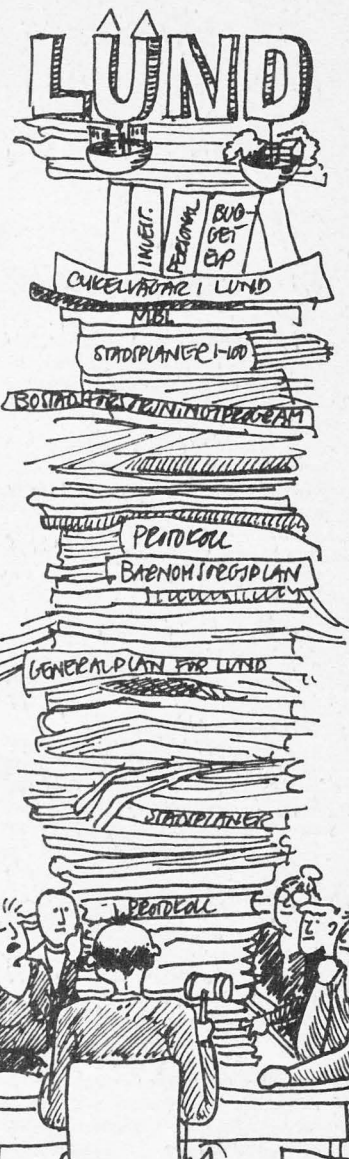 LUND
INVEST.
PERSONAL
BUD-
GET
EXP
CYKELVÄGAR I LUND
MBL
STADSPLANER 1-100
BOSTADSFÖRSÖRJNINGSPROGRAM
PROTOKOLL
BARNOMSORGSPLAN
GENERALPLAN FÖR LUND
STADSPLANER
PROTOKOLL